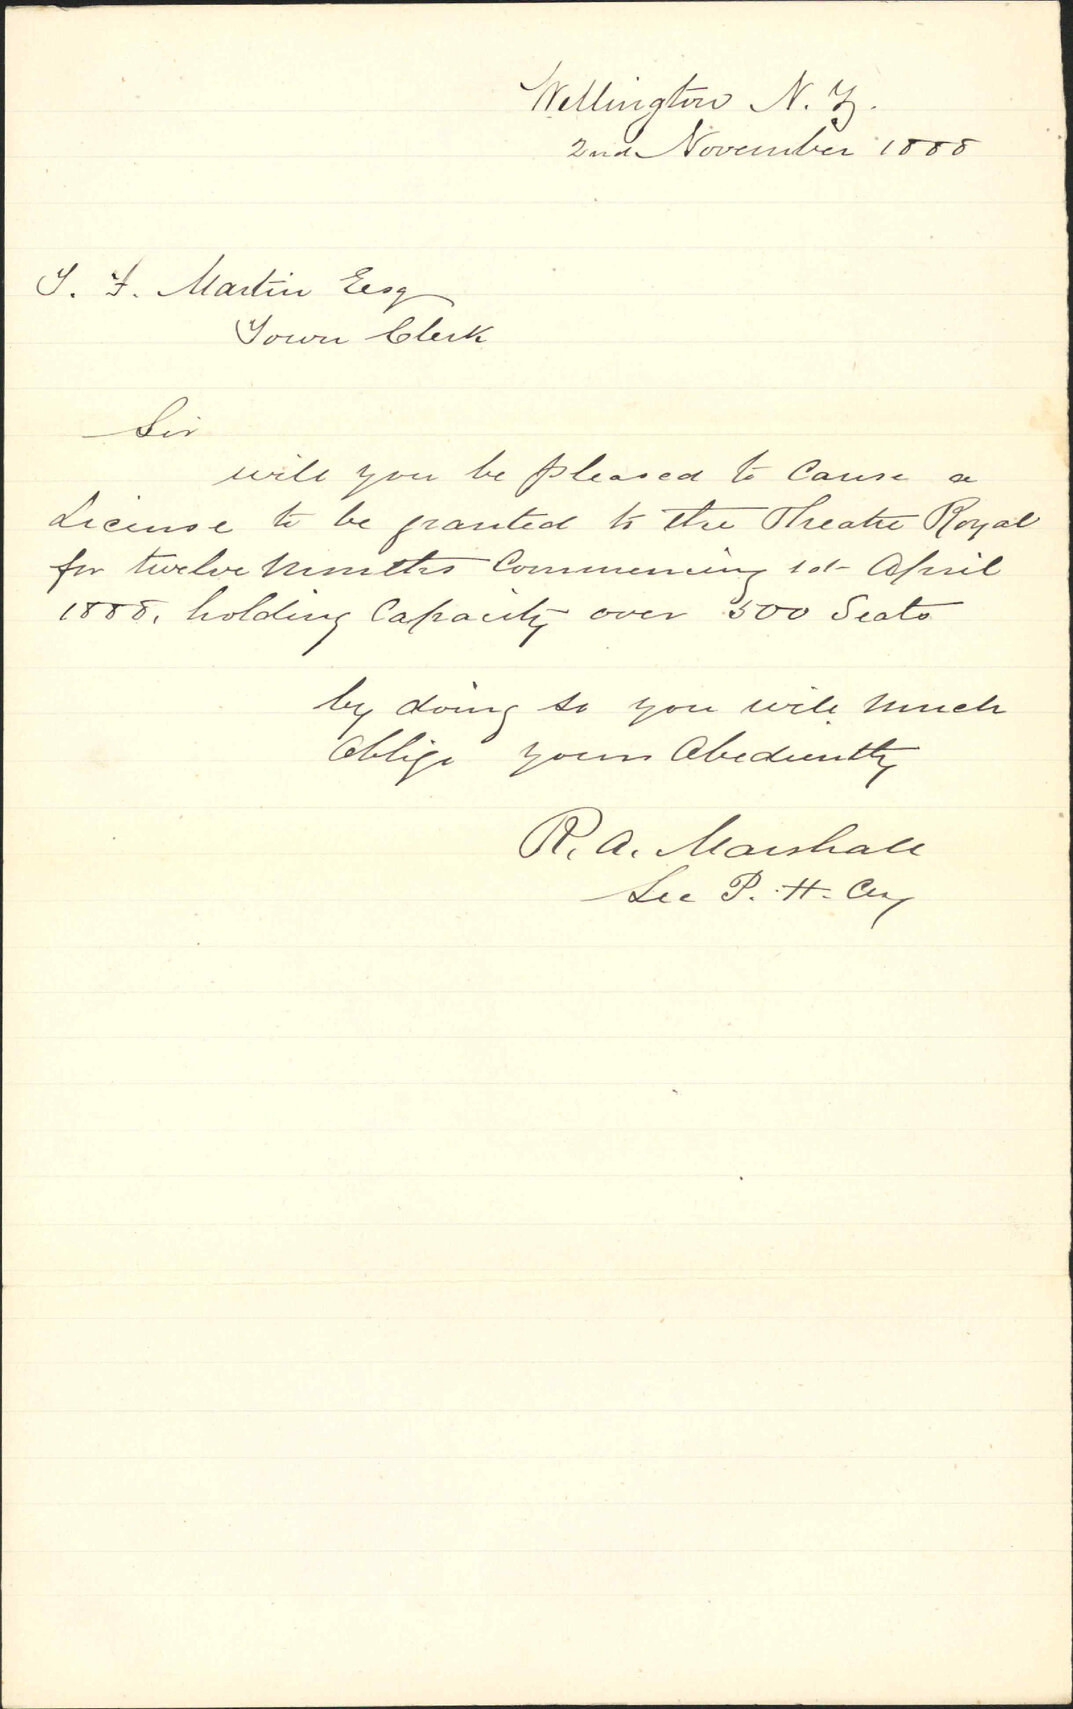 Wellington N. Z.
2nd November 1888
T. F. Martin Esq
Town Clerk
Sir
will you be pleased to Cause a
License to be granted to the Theatre Royal
for twelve Months Commencing 1st April
1888, holding Capacity over 500 Seats
by doing so you will much
Oblige yours Obediently
R. A. Marshall
Sec P. H. Coy